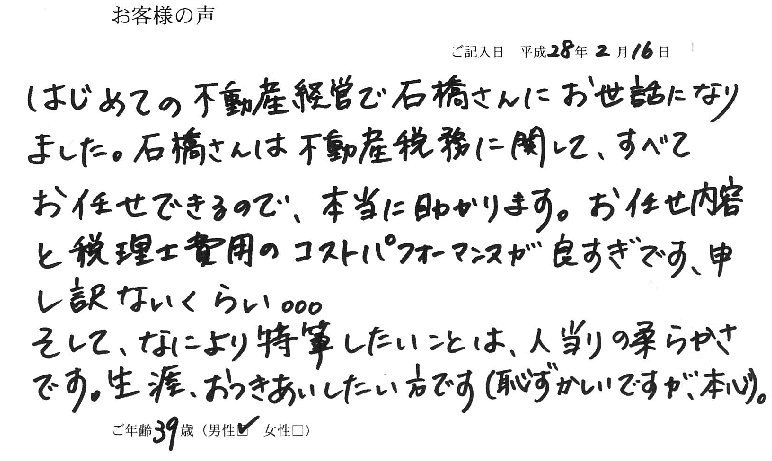 お客様の声
ご記入日 平成28年2月16日
はじめての不動産経営で石橋さんにお世話になり
ました。石橋さんは不動産税務に関して、すべて
お任せできるので、本当に助かります。お任せ内容
と税理士費用のコストパフォーマンスが良すぎです、申
し訳ないくらい。。。
そして、なにより特筆したいことは、人当りの柔らかさ
です。生涯、おつきあいしたい方です(恥ずかしいですが、本心)。
ご年齢39歳(男性☑ 女性□)